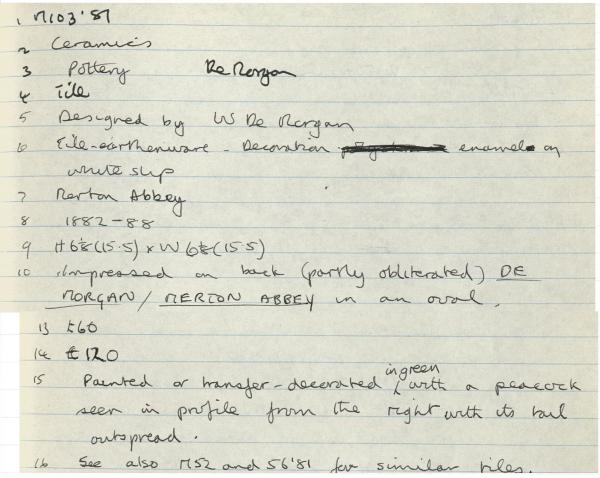 1 M103'81
2 Ceramics
3 Pottery De Morgan
4 Tile
5 Designed by W De Morgan
6 Tile-earthenware - Decoration enamel on
white slip
7 Merton Abbey
8 1882-88
9 H 6⅛(15.5) x W 6⅛(15.5)
10 Impressed on back (partly obliterated) DE
MORGAN/ MERTON ABBEY in an oval.
13 £60
14 £120
15 Painted or transfer-decorated in green with a peacock
seen in profile from the right with its tail
outspread.
16 See also M52 and 56'81 for similar tiles.